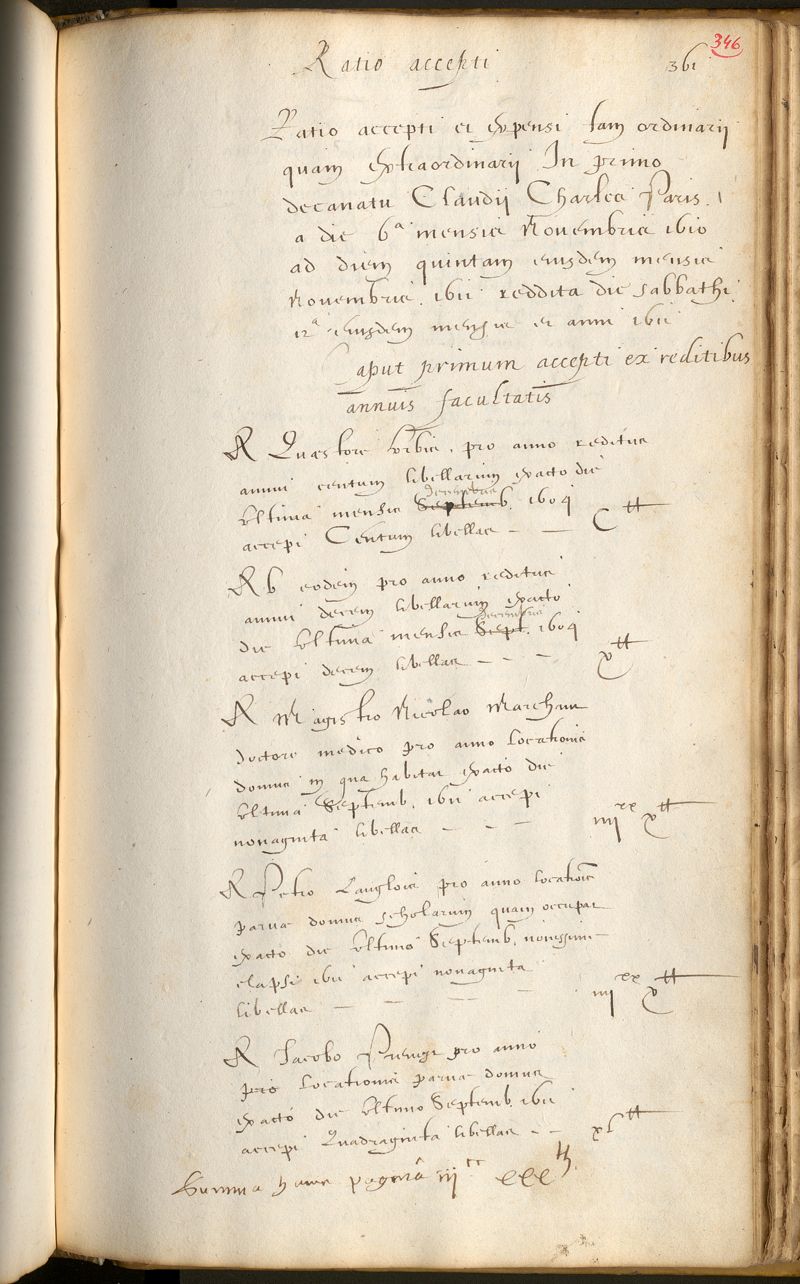 346
Ratio accepti 361
Ratio accepti et expensi tam ordinarij
quam extraordinarij In primo
decanatu Claudij Charles Paris.
a die 6ª mensis Novembris 1610
ad diem quintam eiusdem mensis
Novembris. 1611 reddita die sabbathi
12ª eiusdem mensis et anni 1611
Caput primum accepti ex reditibus
annuis facultatis
A Quæstore Urbis, pro anno reditus
annui centum libellarum exacto die
Ultima mensis Septemb. Decembris 1604
accepi Centum libellas – — C ₶
Ab eodem pro anno reditus
annui decem libellarum exacto
die Ultima mensis Sept. Decembris 1604
accepi decem libellas – – – x ₶
A Magistro Nicolao Marchant
doctore medico pro anno locationis
domus in qua habitat exacto die
Ultima Septemb. 1611 accepi
nonaginta libellas – – – iiii xx x ₶
A Petro Langlois pro anno locationis
parvæ domus scholarum quam occupat
exacto die Ultimo Septemb. novissime
elapsi 1611 accepi nonaginta
libellas — — — — iiii xx x ₶
A Jacobo pro anno
pro locationis parvæ domus
exacto die Ultimo Septemb. 1611
accepi Quadraginta libellas – – xl ₶
Summa huius paginæ iii cc xxx ₶